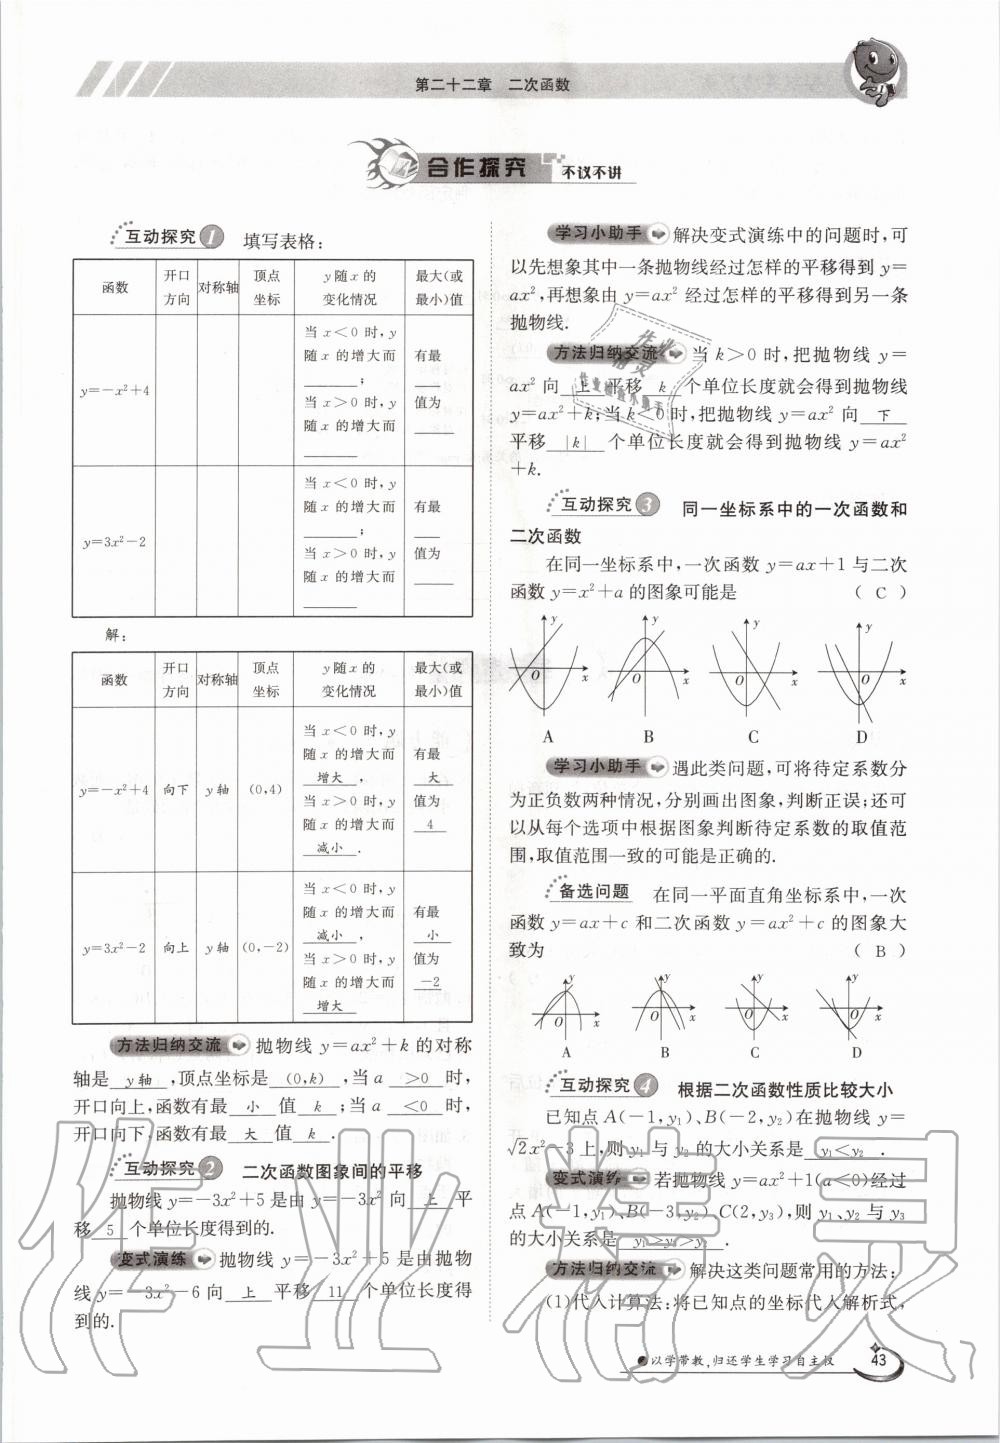 第二十二章 二次函数
合作探究 不议不讲
互动探究1 填写表格:
函数 开口方向 对称轴 顶点坐标 y随x的变化情况 最大(或最小)值
y=-x²+4 当x<0时,y随x的增大而______;当x>0时,y随x的增大而______ 有最___值为____
y=3x²-2 当x<0时,y随x的增大而______;当x>0时,y随x的增大而______ 有最___值为____
解:
函数 开口方向 对称轴 顶点坐标 y随x的变化情况 最大(或最小)值
y=-x²+4 向下 y轴 (0,4) 当x<0时,y随x的增大而增大,当x>0时,y随x的增大而减小. 有最大值为4
y=3x²-2 向上 y轴 (0,-2) 当x<0时,y随x的增大而减小,当x>0时,y随x的增大而增大 有最小值为-2
方法归纳交流 抛物线y=ax²+k的对称
轴是 y轴 ,顶点坐标是 (0,k) ,当a >0 时,
开口向上,函数有最 小 值 k ;当a <0 时,
开口向下,函数有最 大 值 k .
互动探究2 二次函数图象间的平移
抛物线y=-3x²+5是由y=-3x²向 上 平
移 5 个单位长度得到的.
变式演练 抛物线y=-3x²+5是由抛物
线y=-3x²-6向 上 平移 11 个单位长度得
到的.
学习小助手 解决变式演练中的问题时,可
以先想象其中一条抛物线经过怎样的平移得到y=
ax²,再想象由y=ax²经过怎样的平移得到另一条
抛物线.
方法归纳交流 当k>0时,把抛物线y=
ax²向 上 平移 k 个单位长度就会得到抛物线
y=ax²+k;当k<0时,把抛物线y=ax²向 下
平移 |k| 个单位长度就会得到抛物线y=ax²
+k.
互动探究3 同一坐标系中的一次函数和
二次函数
在同一坐标系中,一次函数y=ax+1与二次
函数y=x²+a的图象可能是 ( C )
y y y y
O x O x O x O x
A B C D
学习小助手 遇此类问题,可将待定系数分
为正负数两种情况,分别画出图象,判断正误;还可
以从每个选项中根据图象判断待定系数的取值范
围,取值范围一致的可能是正确的.
备选问题 在同一平面直角坐标系中,一次
函数y=ax+c和二次函数y=ax²+c的图象大
致为 ( B )
y y y y
O x O x O x O x
A B C D
互动探究4 根据二次函数性质比较大小
已知点A(-1,y₁)、B(-2,y₂)在抛物线y=
√2x²-3上,则y₁与y₂的大小关系是 y₁<y₂ .
变式演练 若抛物线y=ax²+1(a<0)经过
点A(-1,y₁)、B(-3,y₂)、C(2,y₃),则y₁、y₂与y₃
的大小关系是 y₁>y₃>y₂ .
方法归纳交流 解决这类问题常用的方法:
(1)代入计算法:将已知点的坐标代入解析式,
以学带教,归还学生学习自主权 43
作业精灵